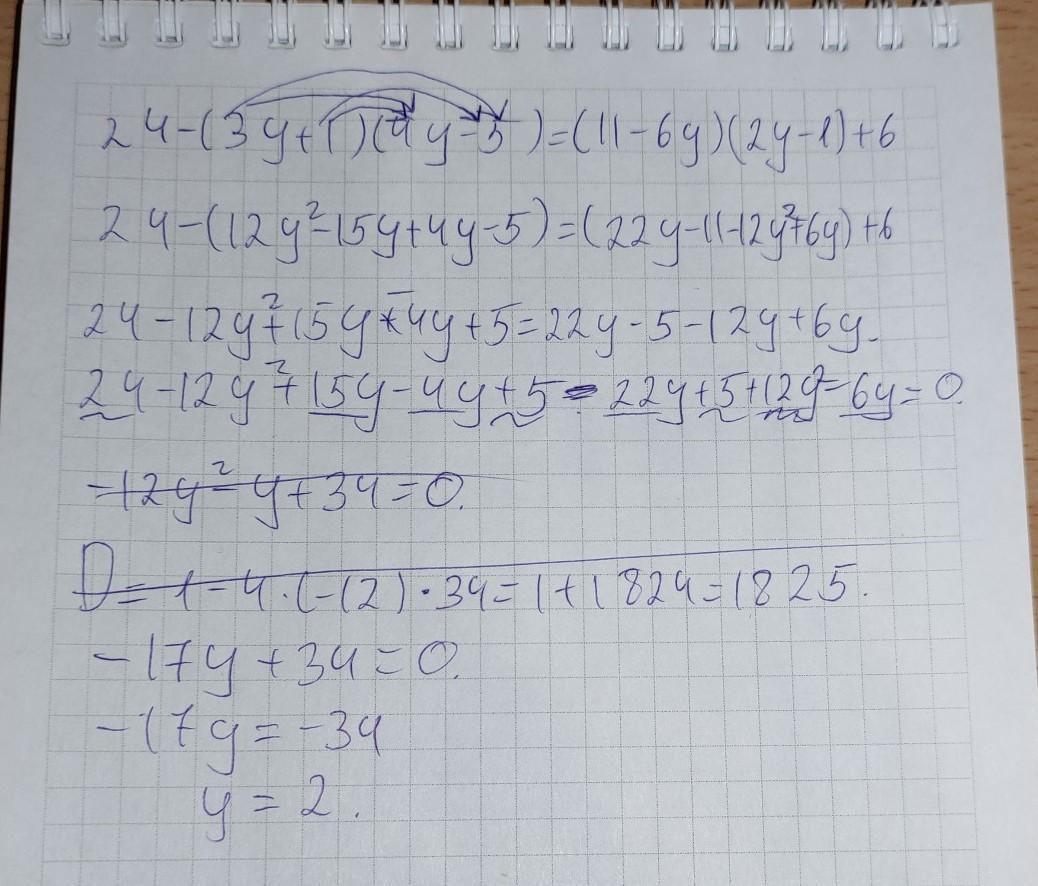 24-(3y+1)(4y-5)=(11-6y)(2y-1)+6
24-(12y²-15y+4y-5)=(22y-11-12y²+6y)+6
24-12y²+15y-4y+5=22y-5-12y+6y.
24-12y²+15y-4y+5-22y+5+12y²-6y=0.
-12y²-y+34=0.
D=1-4·(-12)·34=1+1824=1825.
-17y+34=0.
-17y=-34
y=2.